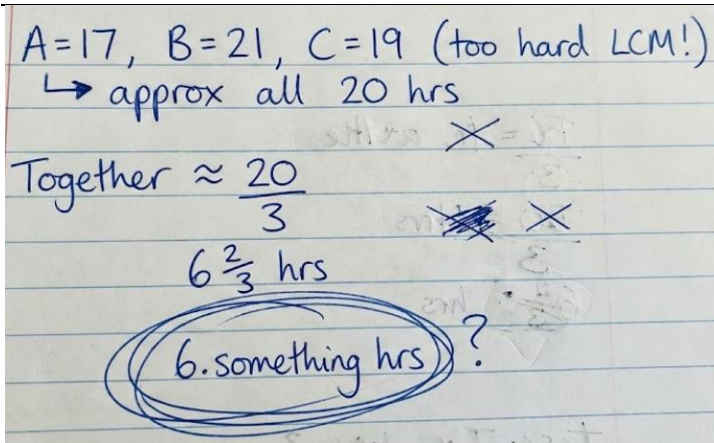 A = 17, B = 21, C = 19 (too hard LCM!)
↳ approx all 20 hrs
Together ≈ 20/3
6 2/3 hrs
6.something hrs ?